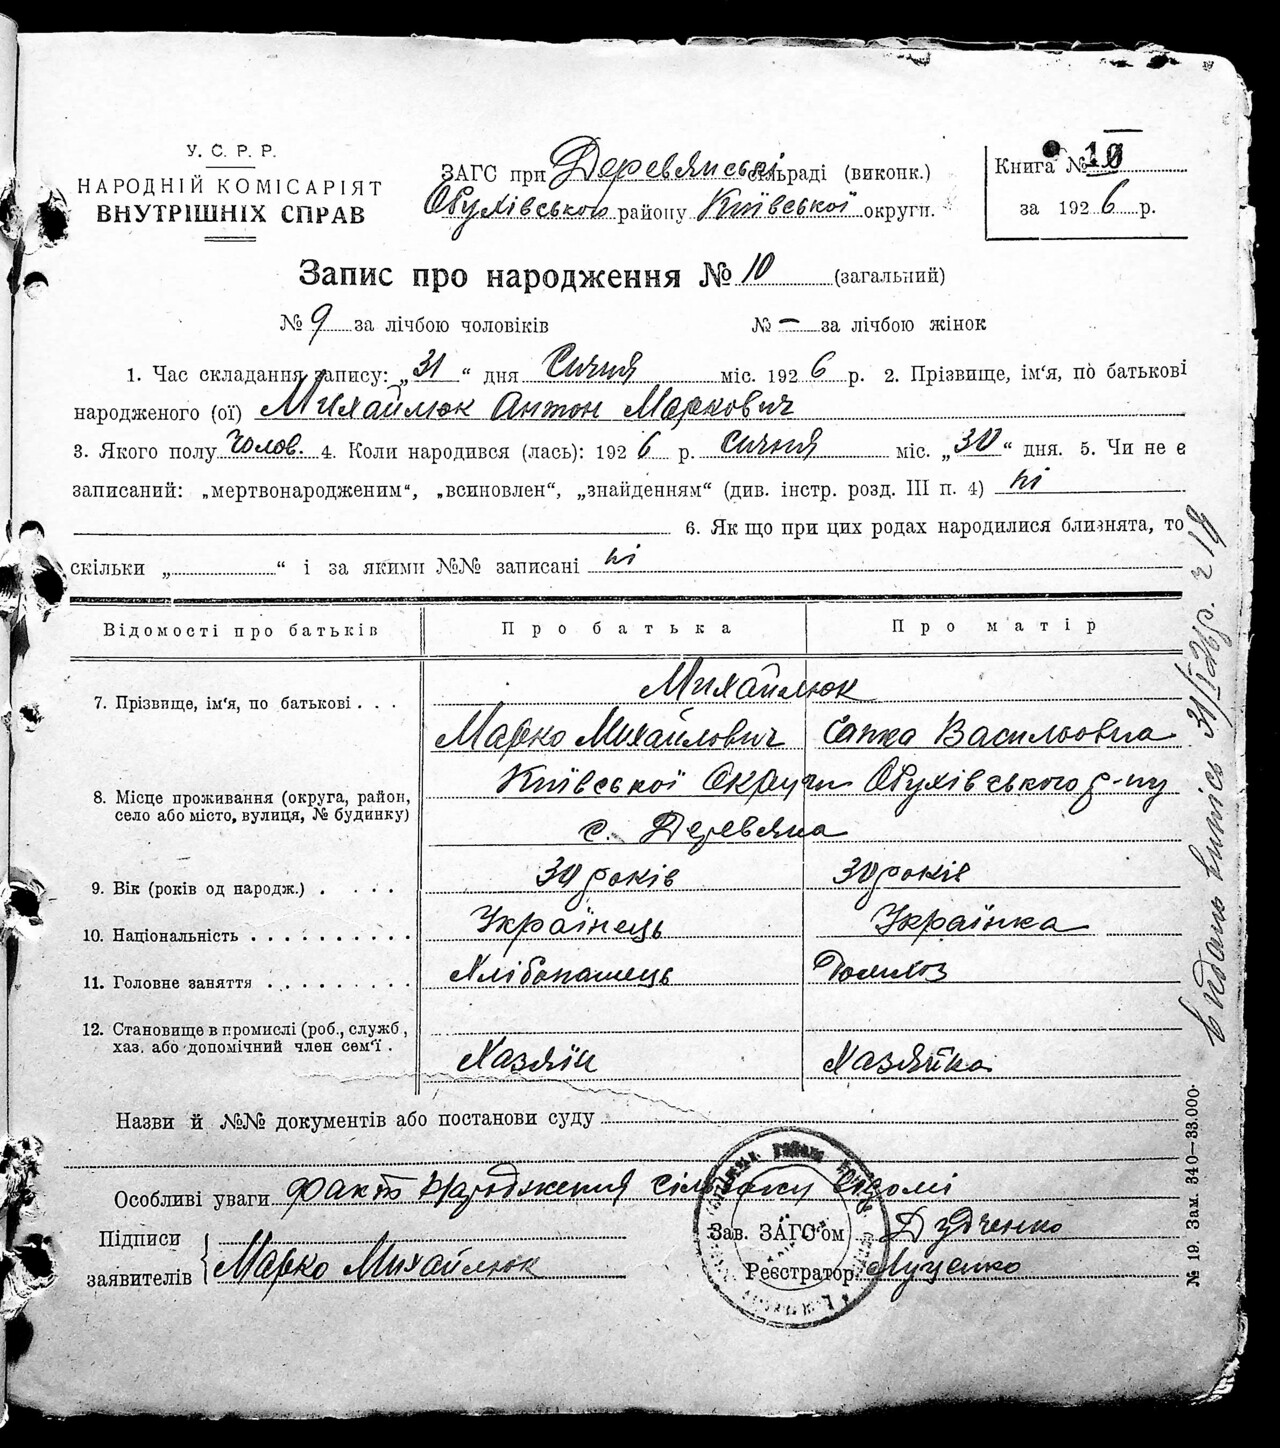 У. С. Р. Р.
НАРОДНІЙ КОМІСАРІЯТ
ВНУТРІШНІХ СПРАВ
ЗАГС при Деревянській сільраді (виконк.)
Обухівського району Київської округи.
Книга № 10
за 1926 р.
Запис про народження № 10 (загальний)
№ 9 за лічбою чоловіків № – за лічбою жінок
1. Час складання запису: „31“ дня Січня міс. 1926 р. 2. Прізвище, ім‘я, по батькові
народженого (ої) Михайлюк Антон Маркович
3. Якого полу Чолов. 4. Коли народився (лась): 1926 р. січня міс. „30“ дня. 5. Чи не є
записаний: „мертвонародженим“, „всиновлен“, „знайденням“ (див. інстр. розд. III п. 4) ні
6. Як що при цих родах народилися близнята, то
скільки „ “ і за якими №№ записані ні
Відомості про батьків Про батька Про матір
7. Прізвище, ім‘я, по батькові . . . Михайлюк
Марко Михайлович Василовна
8. Місце проживання (округа, район,
село або місто, вулиця, № будинку)
Київської Округи Обухівського р-ну
с. Деревяна
9. Вік (років од народж.) . . . . 30 років 30 років
10. Національність . . . . . . . . . . Українець Українка
11. Головне заняття . . . . . . . . . Хлібопашець Домхоз
12. Становище в промислі (роб., служб,
хаз. або допомічний член сем‘ї . Хазяїн Хазяйка
Назви й №№ документів або постанови суду
Особливі уваги факт народження сільраді відомі
Підписи
заявителів Марко Михайлюк
Зав. ЗАГС‘ом Дудченко
Реєстратор Луценко
№ 19. Зам. 340—33.000.
Видань випись 31/I 26 р.